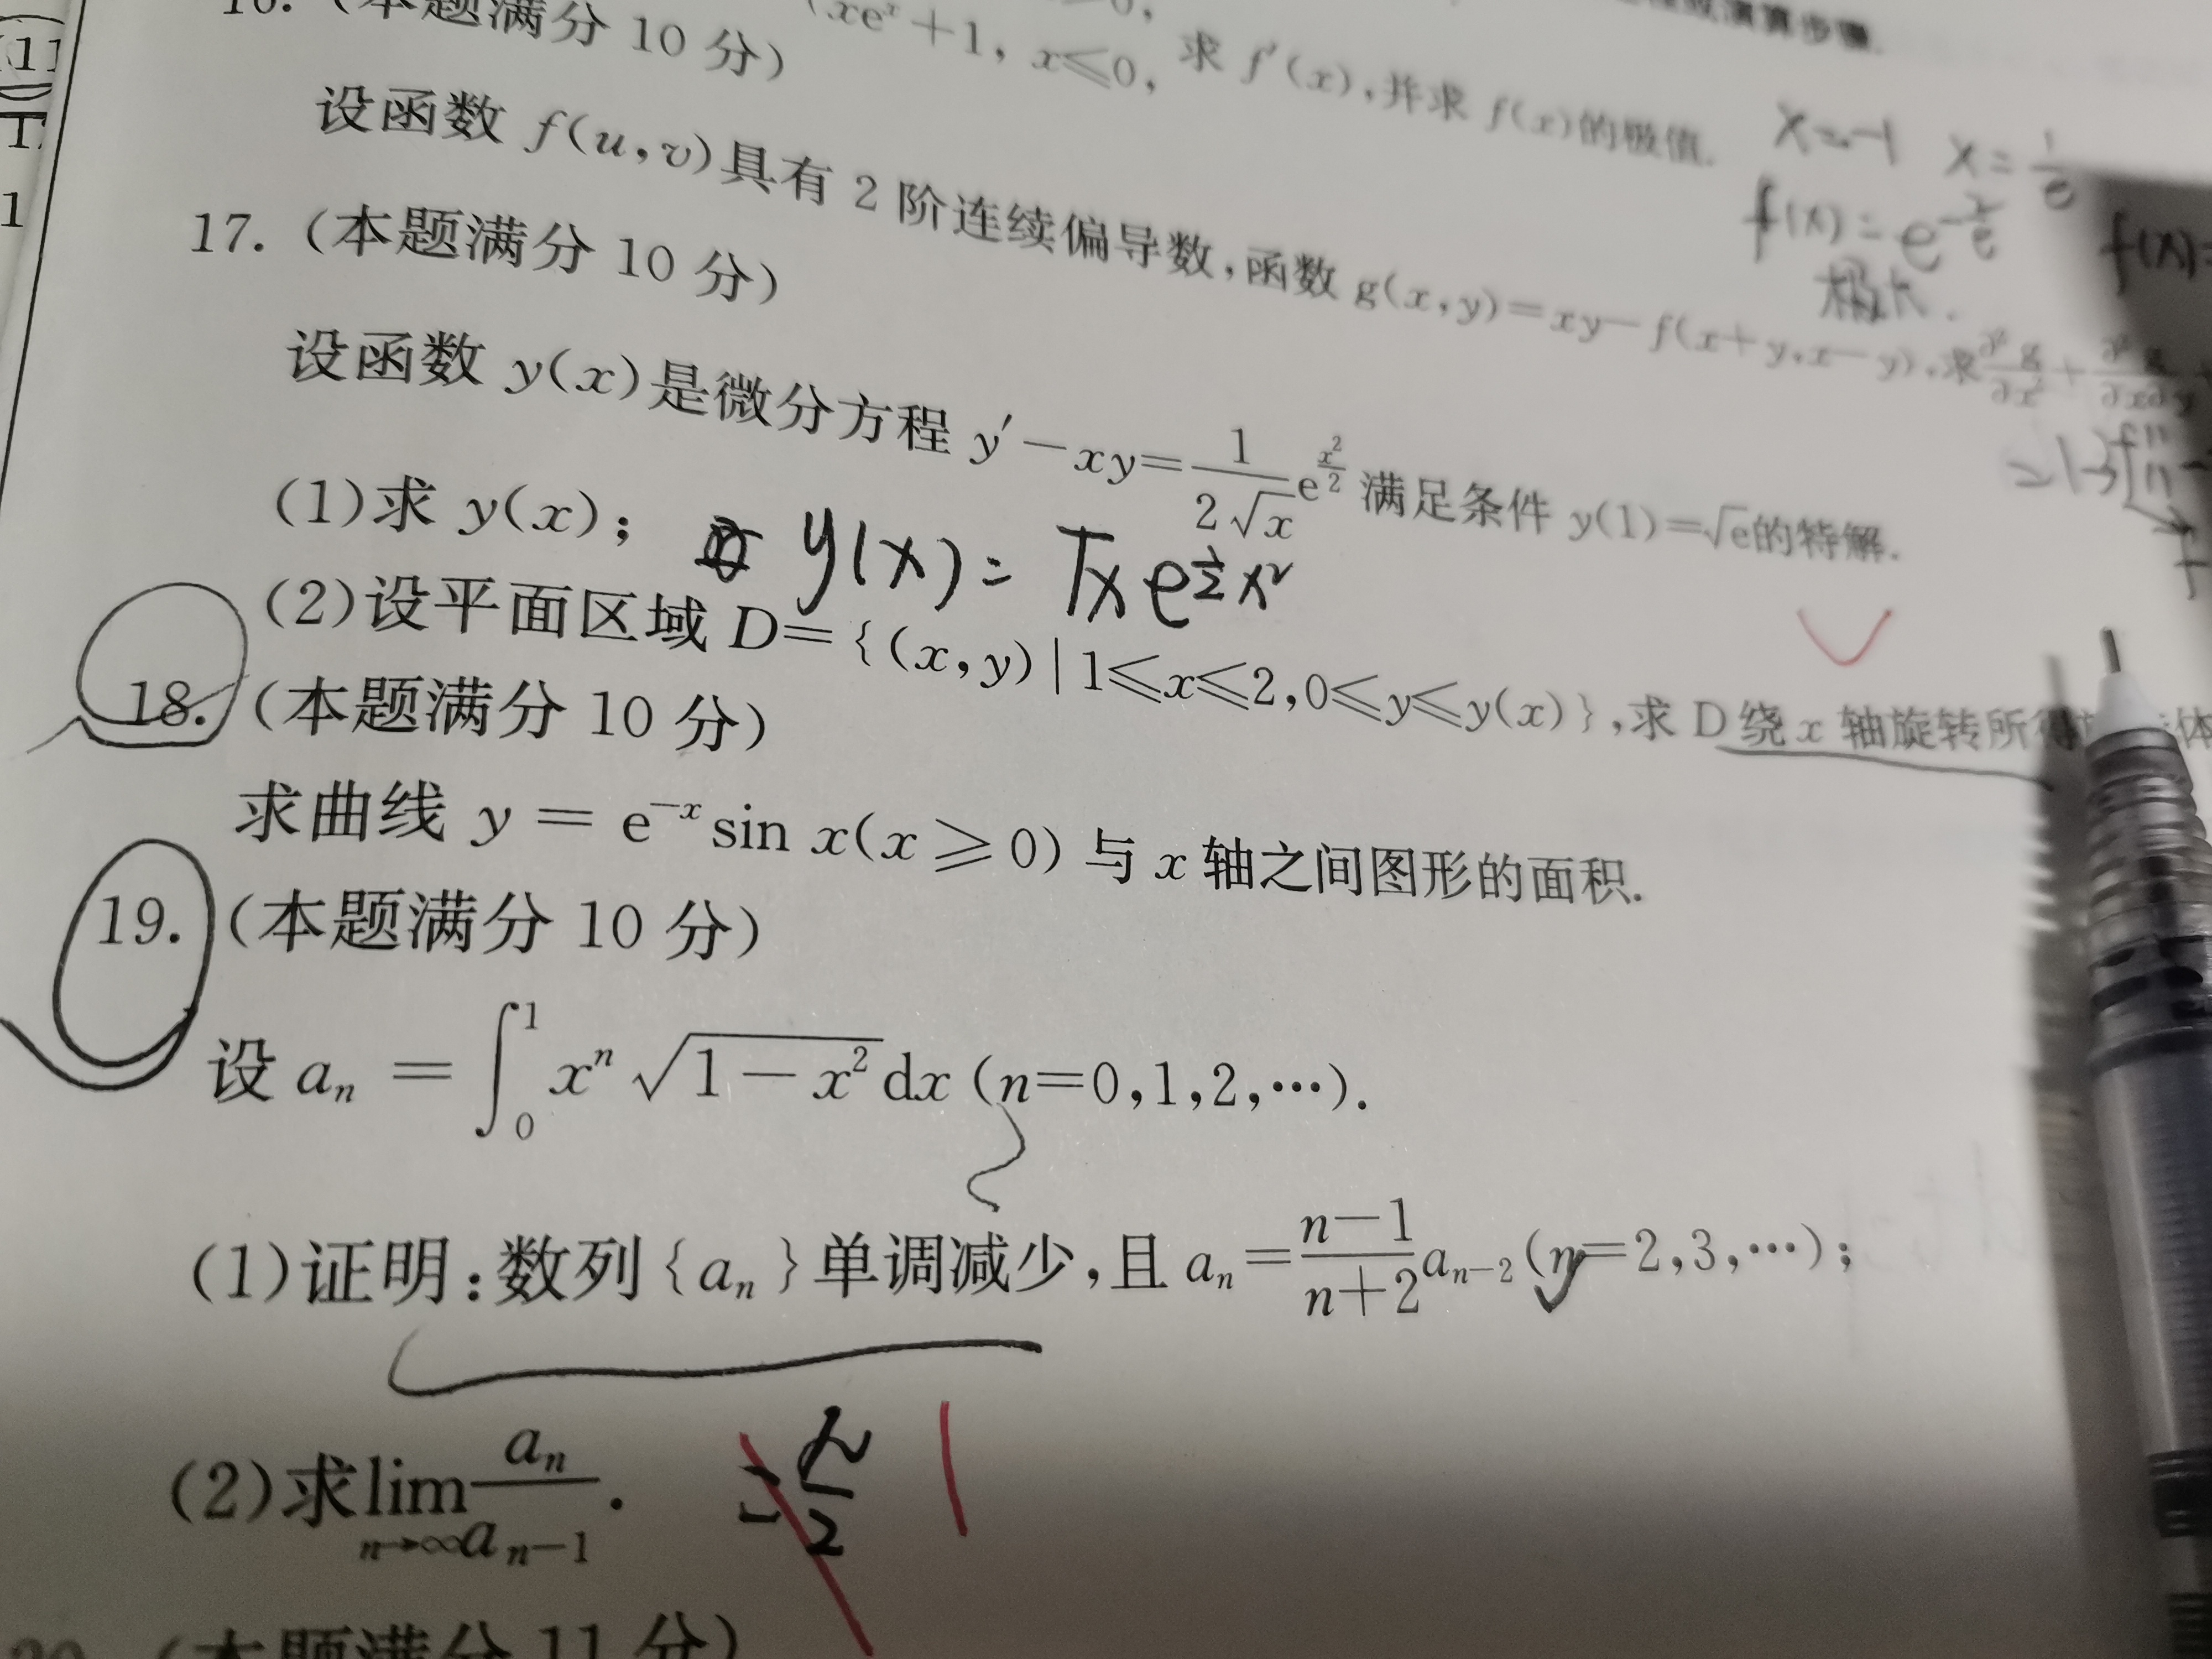 (11
1
16. (本题满分 10 分)
xeˣ+1, x≤0, 求 f′(x),并求 f(x)的极值.
x=-1 x=1/e
f(x)=e^(-2/e)
极小.
f(x)=
设函数 f(u,v)具有 2 阶连续偏导数,函数 g(x,y)=xy-f(x+y,x-y),求∂²g/∂x²+∂²g/∂x∂y
17. (本题满分 10 分)
设函数 y(x)是微分方程 y′-xy=1/(2√x) e^(x²/2) 满足条件 y(1)=√e的特解.
(1)求 y(x);
y(x)=√x e^(½x²)
(2)设平面区域 D={(x,y)|1≤x≤2,0≤y≤y(x)},求 D 绕 x 轴旋转所得 体
18. (本题满分 10 分)
求曲线 y = e⁻ˣ sin x(x≥0) 与 x 轴之间图形的面积.
19. (本题满分 10 分)
设 aₙ = ∫₀¹ xⁿ √(1-x²) dx (n=0,1,2,⋯).
(1)证明:数列{aₙ}单调减少,且 aₙ=(n-1)/(n+2) aₙ₋₂(n=2,3,⋯);
(2)求 lim(n→∞) aₙ/aₙ₋₁. 1
20. (本题满分 11 分)